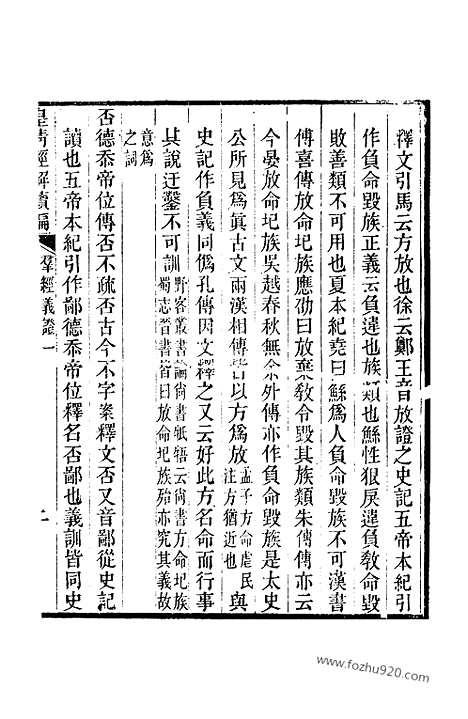 釋文引馬云方放也徐云鄭王音放證之史記五帝本紀引
作負命毀族正義云負違也族類也鯀性狠戾違負敎命毀
敗善類不可用也夏本紀堯曰鯀爲人負命毀族不可漢書
傅喜傳放命圮族應劭曰放棄敎令毀其族類朱博傳亦云
今晏放命圮族吳越春秋無余外傳亦作負命毀族是太史
公所見爲眞古文兩漢相傳皆以方爲放孟子方命虐民注方猶逆也與
史記作負義同僞孔傳因文釋之又云好此方名命而行事
其說迂鑿不可訓野客叢書論尙書牴牾云尙書方命圮族蜀志晉書皆曰放命圮族殆亦究其義故
意爲之詞
否德忝帝位傳否不疏否古今不字案釋文否又音鄙從史記
讀也五帝本紀引作鄙德忝帝位釋名否鄙也義訓皆同史
皇淸經解續編
羣經義證一
二
www.fozhu920.com